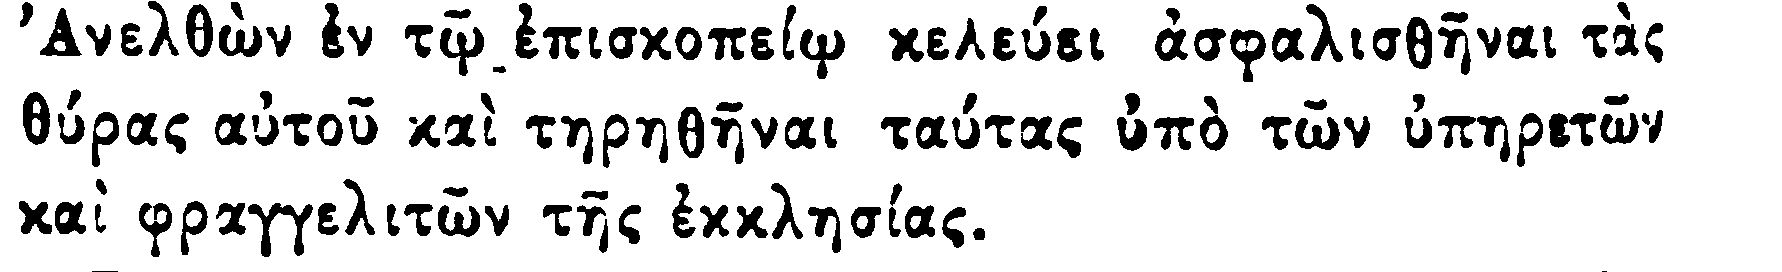 Ἀνελθὼν ἐν τῷ ἐπισκοπείῳ κελεύει ἀσφαλισθῆναι τὰς
θύρας αὐτοῦ καὶ τηρηθῆναι ταύτας ὑπὸ τῶν ὑπηρετῶν
καὶ φραγγελιτῶν τῆς ἐκκλησίας.